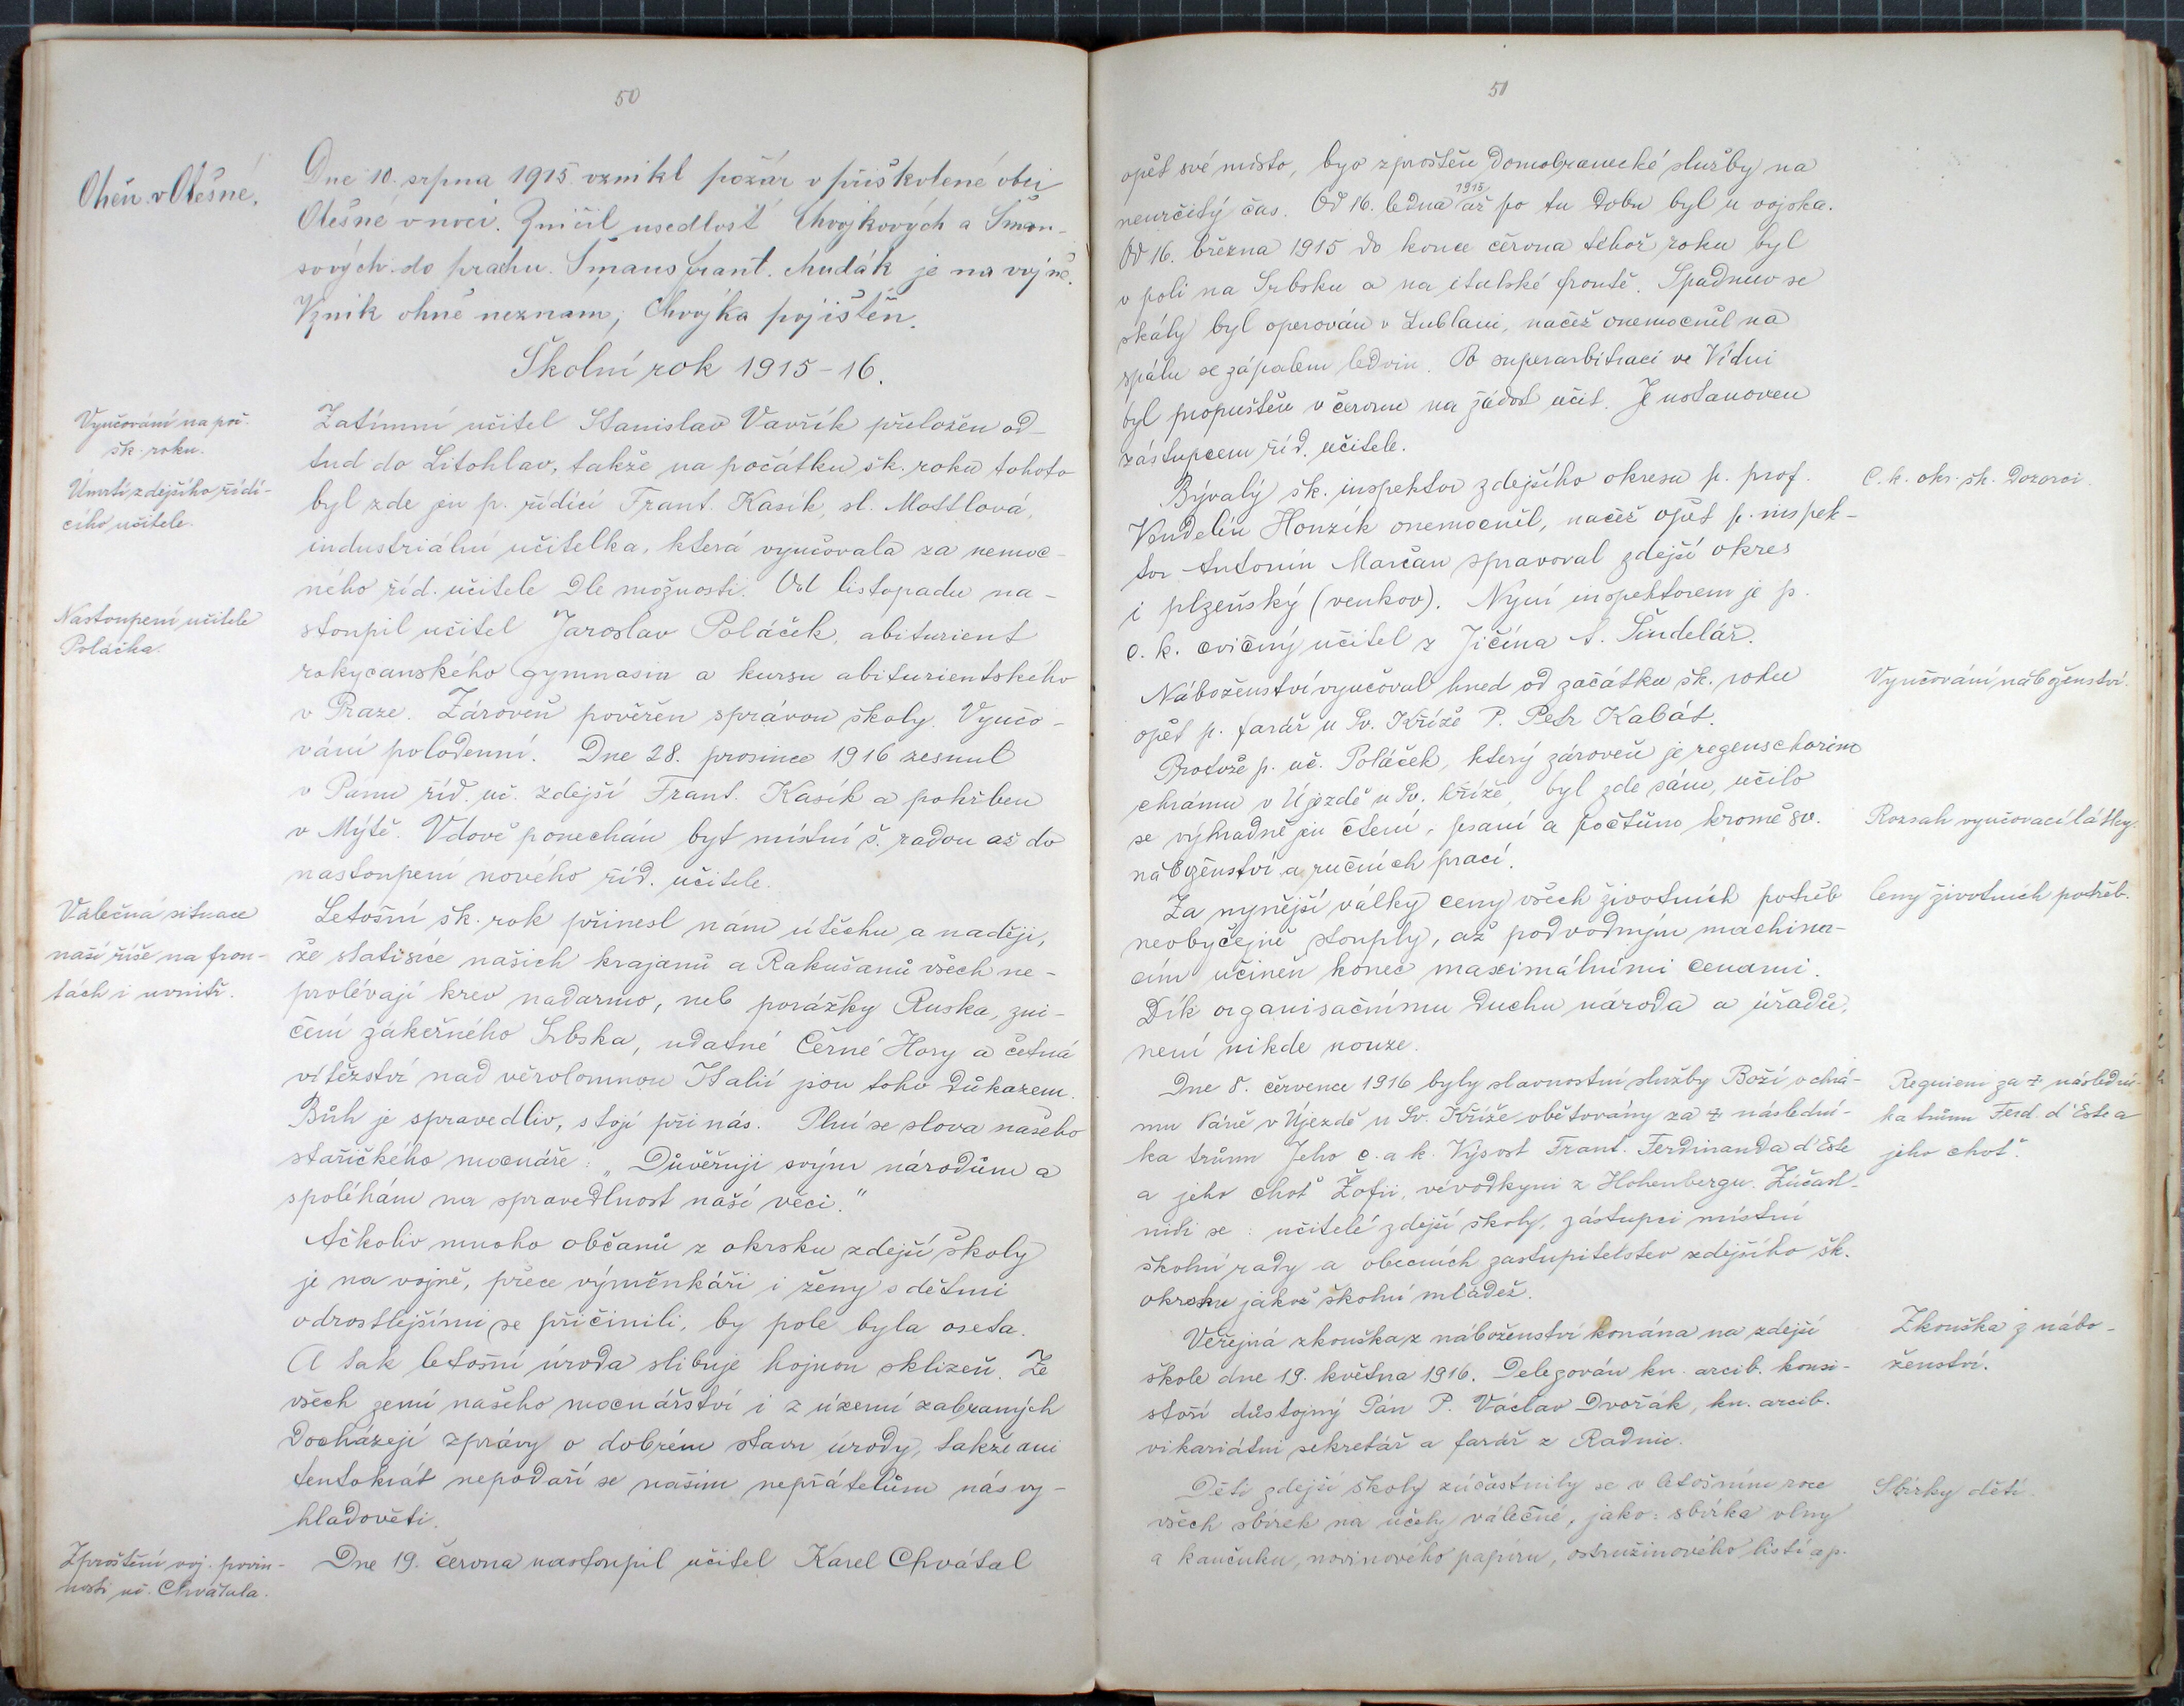 50
Oheň v Olešné.
Dne 10. srpna 1915 vznikl požár v přiškolené obci
Olešné v noci. Zničil usedlosť Chvojkových a Šman-
sových do prachu. Šmaus Frant. chudák je na vojně.
Vznik ohně neznam; Chvojka pojištěn.
Školní rok 1915-16.
Vyučování na poč.
šk. roku.
Úmrtí zdejšího řídí-
cího učitele.
Zatímní učitel Stanislav Vavřík přeložen od-
tud do Litohlav, takže na počátku šk. roku tohoto
byl zde jen p. řídící Frant. Kasík, sl. Mottlová,
industriální učitelka, která vyučovala za nemoc-
ného říd. učitele dle možnosti. Od listopadu na-
Nastoupení učitele
Poláčka.
stoupil učitel Jaroslav Poláček, abiturient
rokycanského gymnasia a kursu abiturientského
v Praze. Zároveň pověřen správou školy. Vyučo-
vání polodenní. Dne 28. prosince 1916 zesnul
v Pánu říd. uč. zdejší Frant. Kasík a pohřben
v Mýtě. Vdově ponechán byt místní š. radou až do
nastoupení nového říd. učitele.
Válečná situace
naší říše na fron-
tách i uvnitř.
Letošní šk. rok přinesl nám útěchu a naději,
že statisíce našich krajanů a Rakušanů všech ne-
prolévají krev nadarmo, neb porážky Ruska, zni-
čení zákeřného Srbska, udatné Černé Hory a četná
vítězství nad věrolomnou Italií jsou toho důkazem.
Bůh je spravedliv, stojí při nás. Plní se slova našeho
stařičkého mocnáře: „Důvěřuji svým národům a
spoléhám na spravedlnost naší věci."
Ačkoliv mnoho občanů z okrsku zdejší školy
je na vojně, přece výměnkáři i ženy s dětmi
odrostlejšími se přičinili, by pole byla oseta.
A tak letošní úroda slibuje hojnou sklizeň. Ze
všech zemí našeho mocnářství i z území zabraných
docházejí zprávy o dobrém stavu úrody, takže ani
tentokrát nepodaří se našim nepřátelům nás vy-
hladověti.
Zproštění voj. povin-
nosti uč. Chvátala.
Dne 19. června nastoupil učitel Karel Chvátal
51
opět své místo, byv zproštěn domobranecké služby na
neurčitý čas. Od 16. ledna 1915 až po tu dobu byl u vojska.
Od 16. března 1915 do konce června téhož roku byl
v poli na Srbsku a na italské frontě. Spadnuv se
skály byl operován v Lublani, načež onemocněl na
spálu se zápalem ledvin. Po superarbitraci ve Vídni
byl propuštěn v červnu na žádost učit. Je ustanoven
zástupcem říd. učitele.
C. k. okr. šk. dozorci.
Bývalý šk. inspektor zdejšího okresu p. prof.
Vendelín Honzík onemocněl, načež opět p. inspek-
tor Antonín Marčan spravoval zdejší okres
i plzeňský (venkov). Nyní inspektorem je p.
c. k. cvičný učitel z Jičína A. Šindelář.
Vyučování náboženství.
Náboženství vyučoval hned od začátku šk. roku
opět p. farář u Sv. Kříže P. Petr Kabát.
Protože p. uč. Poláček, který zároveň je regenschorim
chrámu v Újezdě u Sv. Kříže, byl zde sám, učilo
Rozsah vyučovací látky.
se výhradně jen čtení, psaní a počtům kromě sv.
náboženství a ručních prací.
Ceny životních potřeb.
Za nynější války ceny všech životních potřeb
neobyčejně stouply, až podvodným machina-
cím učiněn konec maximálními cenami.
Dík organisačnímu duchu národa a úřadů,
není nikde nouze.
Requiem za † následní-
ka trůnu Ferd. d'Este a
jeho choť.
Dne 8. července 1916 byly slavnostní služby Boží v chrá-
mu Páně v Újezdě u Sv. Kříže obětovány za † následní-
ka trůnu Jeho c. a k. Výsost Frant. Ferdinanda d'Este
a jeho choť Žofii, vévodkyni z Hohenbergu. Zúčast-
nili se: učitelé zdejší školy, zástupci místní
školní rady a obecních zastupitelstev zdejšího šk.
okrsku jakož školní mládež.
Zkouška z nábo-
ženství.
Veřejná zkouška z náboženství konána na zdejší
škole dne 19. května 1916. Delegován kn. arcib. konsi-
stoří důstojný Pán P. Václav Dvořák, kn. arcib.
vikariátní sekretář a farář z Radnic.
Sbírky dětí.
Děti zdejší školy zúčastnily se v letošním roce
všech sbírek na účely válečné, jako: sbírka vlny
a kaučuku, novinového papíru, ostružinového listí ap.